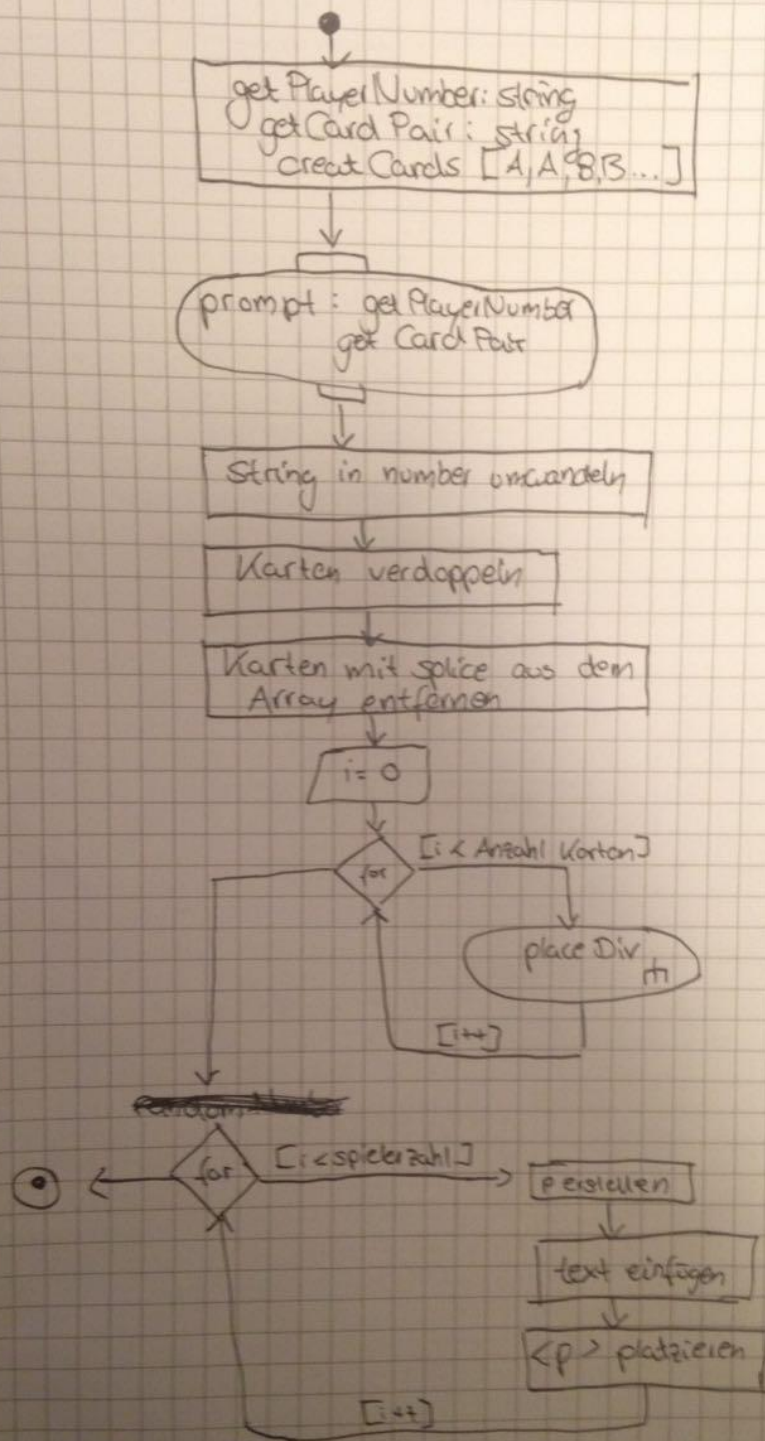 getPlayerNumber: string
getCardPair: string
creat Cards [A,A,B,B...]
prompt: getPlayerNumber
get CardPair
String in number umwandeln
Karten verdoppeln
Karten mit splice aus dem
Array entfernen
i= 0
[i < Anzahl Karten]
for
place Div
[i++]
for
[i<spielerzahl]
p erstellen
text einfügen
<p> platzieren
[i++]